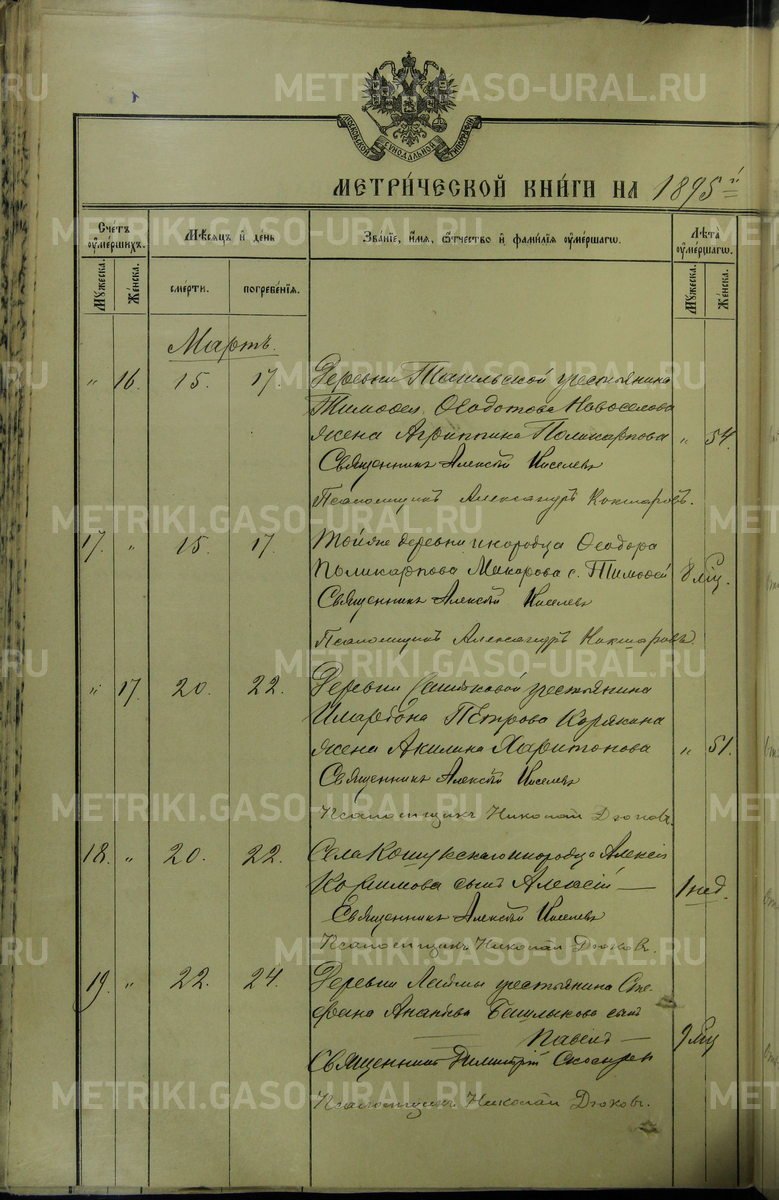 METRIKI.GASO-URAL.RU
МОСКОВСКОЙ СѴНОДАЛЬНОЙ ТИПОГРАФІИ
МЕТРИЧЕСКОЙ КНИГИ НА 1895й
Счетъ умершихъ. Мѣсяцъ и день Званіе, имя, отчество и фамилія умершаго. Лѣта умершаго.
Мужеска. Женска. смерти. погребенія. Мужеска. Женска.
Мартъ.
" 16. 15. 17. Деревни Тагильской крестьянина
Тимофея Ѳеодотова Новоселова
жена Агриппина Поликарпова " 54.
Священникъ Алексѣй Киселевъ
Псаломщикъ Александръ Кокшаровъ.
17. " 15. 17. Той же деревни инородца Ѳеодора
Поликарпова Макарова с. Тимофей 8 мѣц.
Священникъ Алексѣй Киселевъ
Псаломщикъ Александръ Кокшаровъ.
" 17. 20. 22. Деревни крестьянина
Петрова Корякина
жена Акилина Харитонова " 51.
Священникъ Алексѣй Киселевъ
Псаломщикъ Николай Дюковъ.
18. " 20. 22. Села Кошукскаго инородца Алексѣя
сынъ Алексѣй — 1 нед.
Священникъ Алексѣй Киселевъ
Псаломщикъ Николай Дюковъ.
19. " 22. 24. Деревни Лаймы крестьянина Сте-
фана Ананьева Башлыкова сынъ
— Павелъ — 9 мѣц
Священникъ Димитрій
Псаломщикъ Николай Дюковъ.